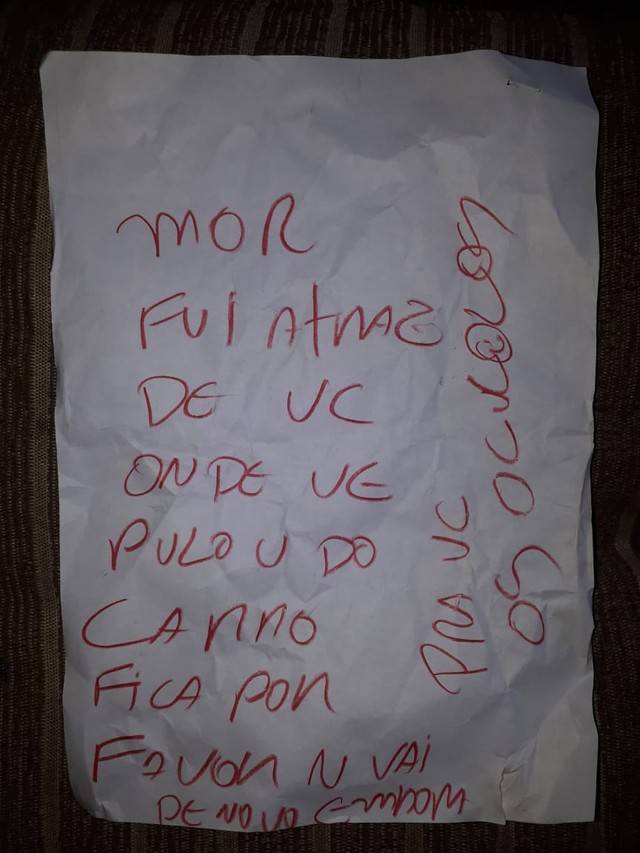 MOR
FUI ATRAZ
DE VC
ONDE VC
PULO U DO
CARRO
FICA POR
FAVOR N VAI
DE NOVO EMBORA
PRA VC
OS OCULOS